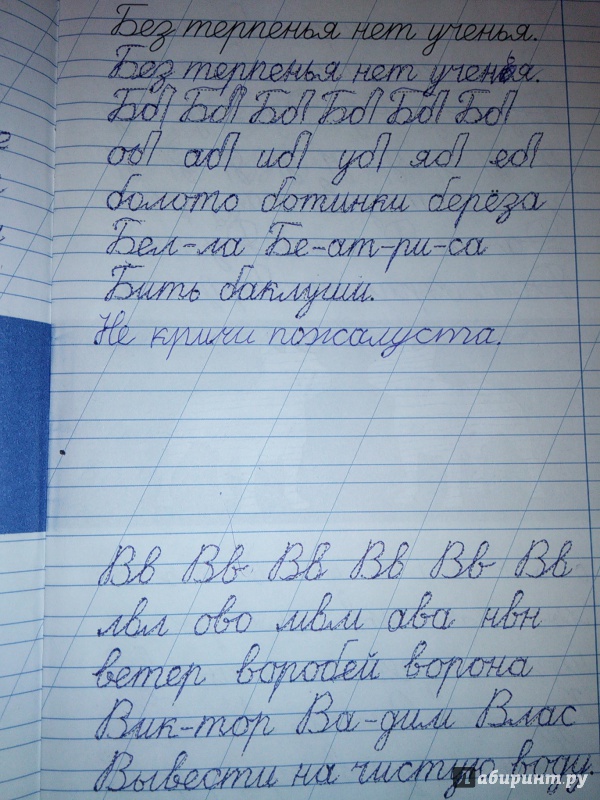 Без терпенья нет ученья.
Без терпенья нет ученья.
Бб Бб Бб Бб Бб Бб
об аб иб уб яб еб
болото ботинки берёза
Бел-ла Бе-ат-ри-са
Бить баклуши.
Не кричи пожалуста.
Вв Вв Вв Вв Вв Вв
лвл ово мвм ава нвн
ветер воробей ворона
Вик-тор Ва-дим Влас
Вывести на чистую воду.
Лабиринт.ру